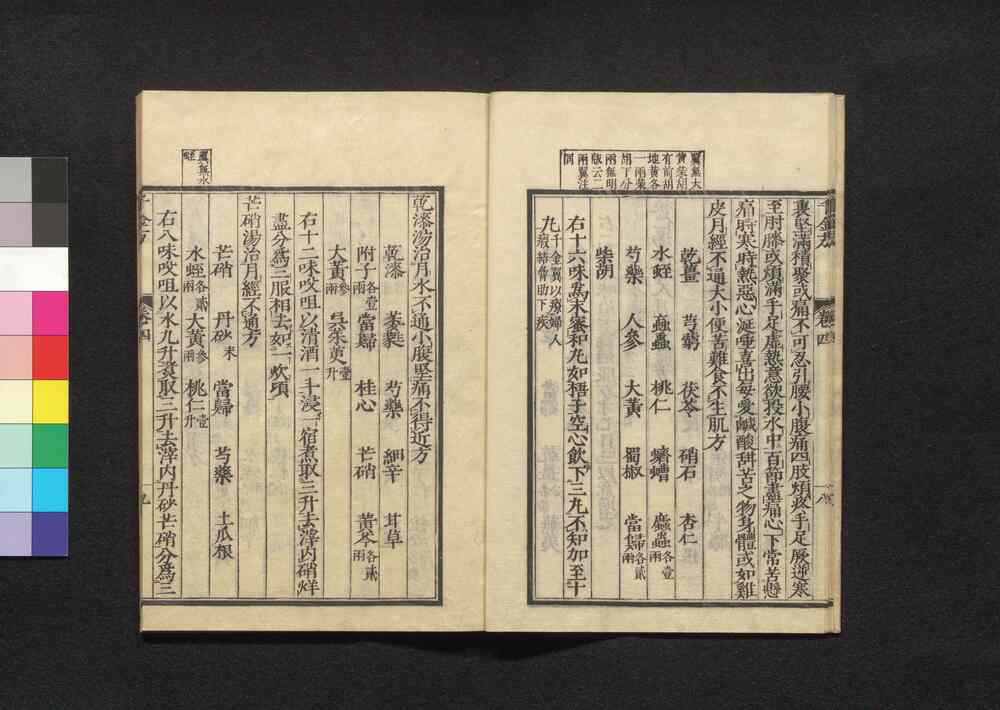 裏堅滿積聚或痛不可忍引腰小腹痛四肢煩疼手足厥逆寒
至肘膝或煩滿手足虛熱意欲投水中百節盡痛心下常苦懸
痛時寒時熱惡心涎唾喜出每愛鹹酸甜苦之物身體或如雞
皮月經不通大小便苦難食不生肌方
乾薑 芎藭 茯苓 硝石 杏仁
水蛭 蝱蟲 桃仁 蠐螬 䗪蟲各壹兩
芍藥 人參 大黃 蜀椒 當歸各貳兩
柴胡
右十六味為末蜜和丸如梧子空心飲下三丸不知加至十
丸千金翼以療婦人
瘕結脅肋下疾
乾漆湯治月水不通小腹堅痛不得近方
乾漆 萎蕤 芍藥 細辛 甘草
附子各壹兩 當歸 桂心 芒硝 黃芩各貳兩
大黃參兩 吳茱萸壹升
右十二味㕮咀以清酒一斗浸一宿煮取三升去滓內硝烊
盡分為三服相去如一炊頃
芒硝湯治月經不通方
芒硝 丹砂末 當歸 芍藥 土瓜根
水蛭各貳兩 大黃參兩 桃仁壹升
右八味㕮咀以水九升煮取三升去滓內丹砂芒硝分為三
翼無水
蛭